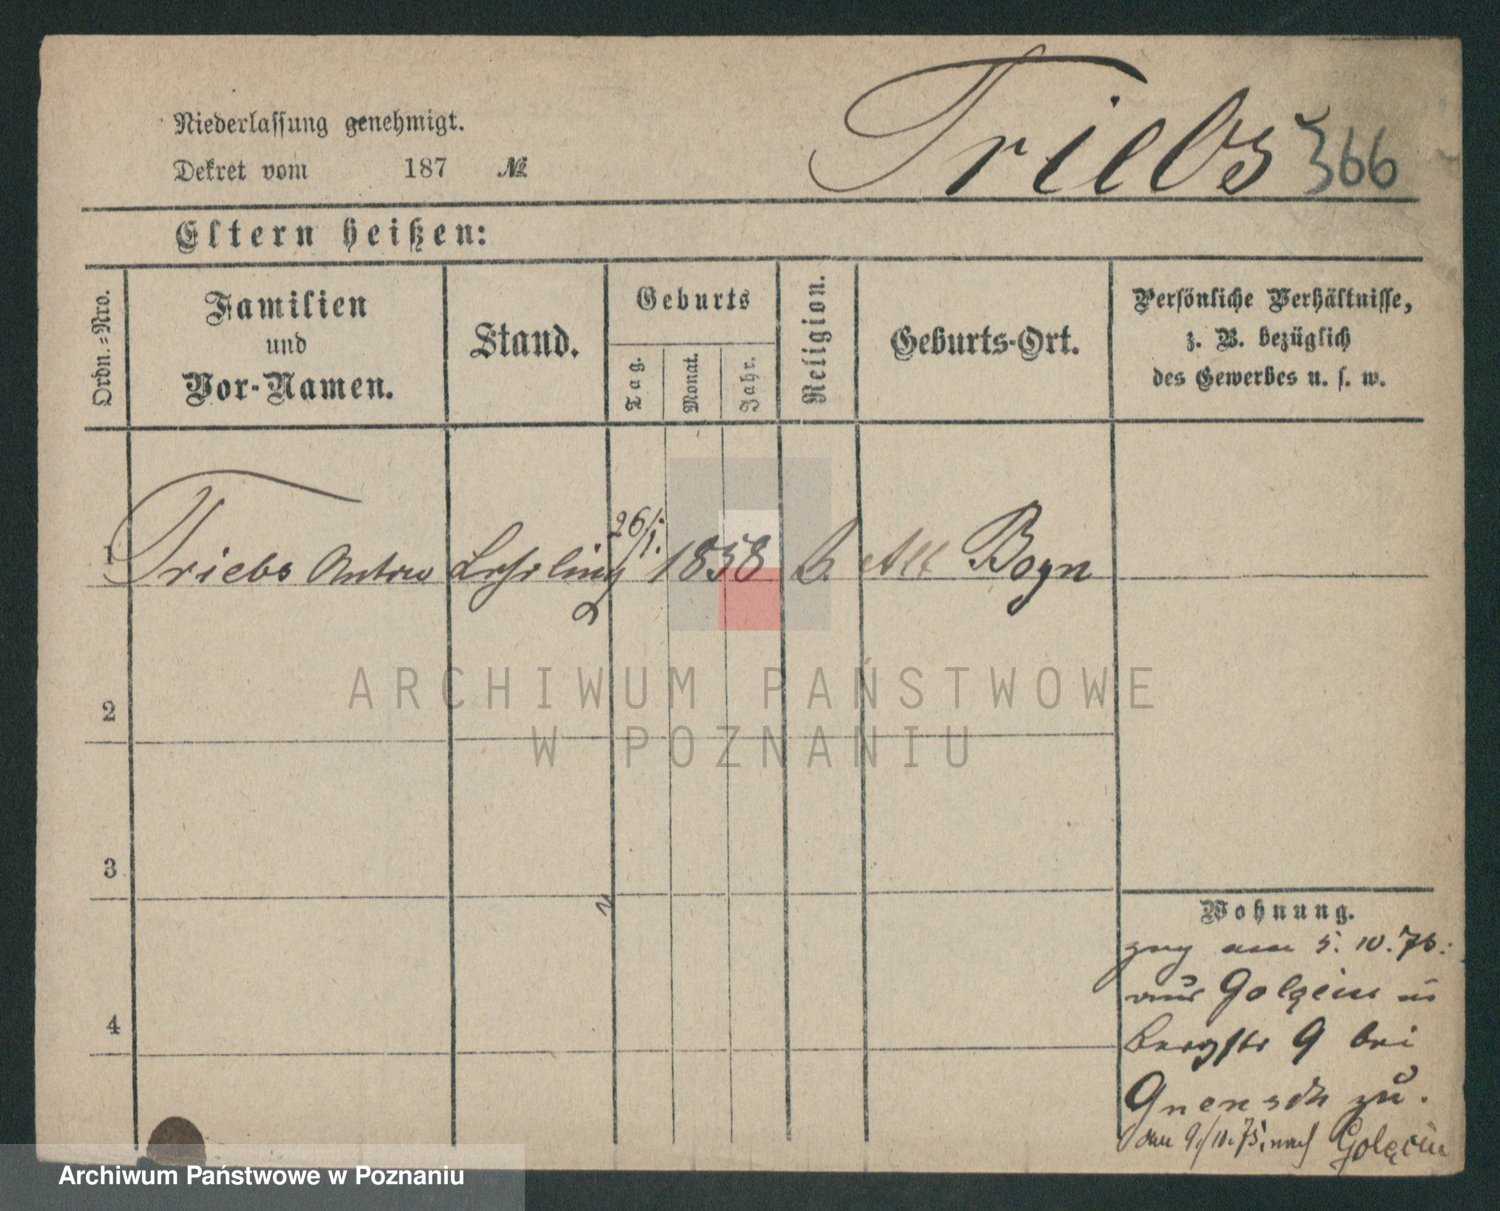 Niederlassung genehmigt.
Dekret vom 187 №
Triebs 366
Eltern heißen:
Ordn.-Nro.
Familien
und
Vor-Namen.
Stand.
Geburts
Tag.
Monat.
Jahr.
Religion.
Geburts-Ort.
Persönliche Verhältnisse,
z. B. bezüglich
des Gewerbes u. s. w.
1 Triebs Lehrling 26/1. 1858 Alt
2
3
4
Wohnung.
zug am 5. 10. 75.
aus Golęcin in
Bergstr 9 bei
zu.
den 9./10. 75. nach Golęcin
ARCHIWUM PAŃSTWOWE
W POZNANIU
Archiwum Państwowe w Poznaniu